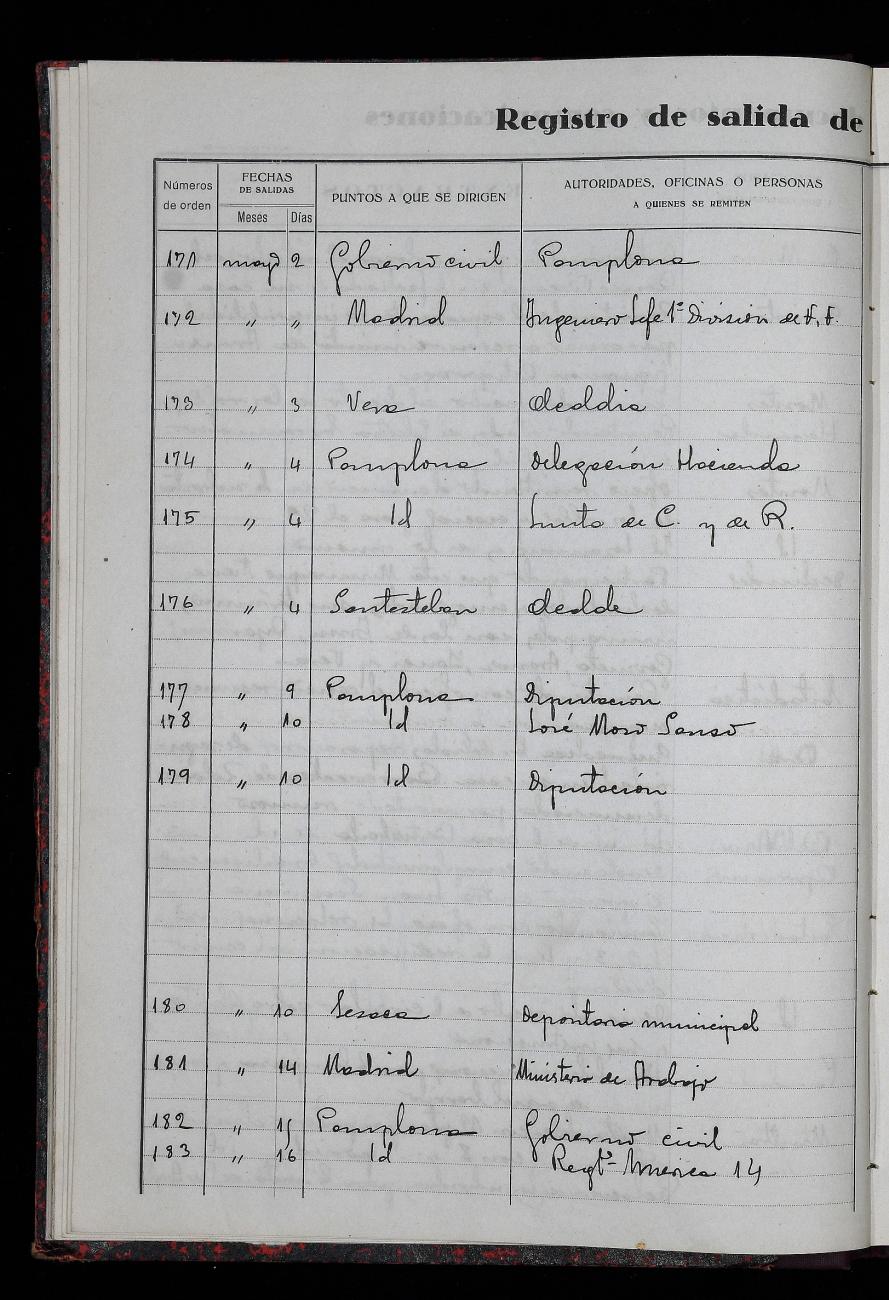 Registro de salida de
Números de orden | FECHAS DE SALIDAS Meses Días | PUNTOS A QUE SE DIRIGEN | AUTORIDADES, OFICINAS O PERSONAS A QUIENES SE REMITEN
171 mayo 2 Gobierno civil Pamplona
172 " " Madrid Ingeniero Jefe 1ª División de F. F.
173 " 3 Vera Alcaldia
174 " 4 Pamplona Delegación Hacienda
175 " 4 Id Junta de C. y de R.
176 " 4 Santesteban Alcalde
177 " 9 Pamplona Diputación
178 " 10 Id José Moso Sanso
179 " 10 Id Diputación
180 " 10 Lesaca Depositario municipal
181 " 14 Madrid Ministerio de Trabajo
182 " 15 Pamplona Gobierno civil
183 " 16 Id Regtº America 14